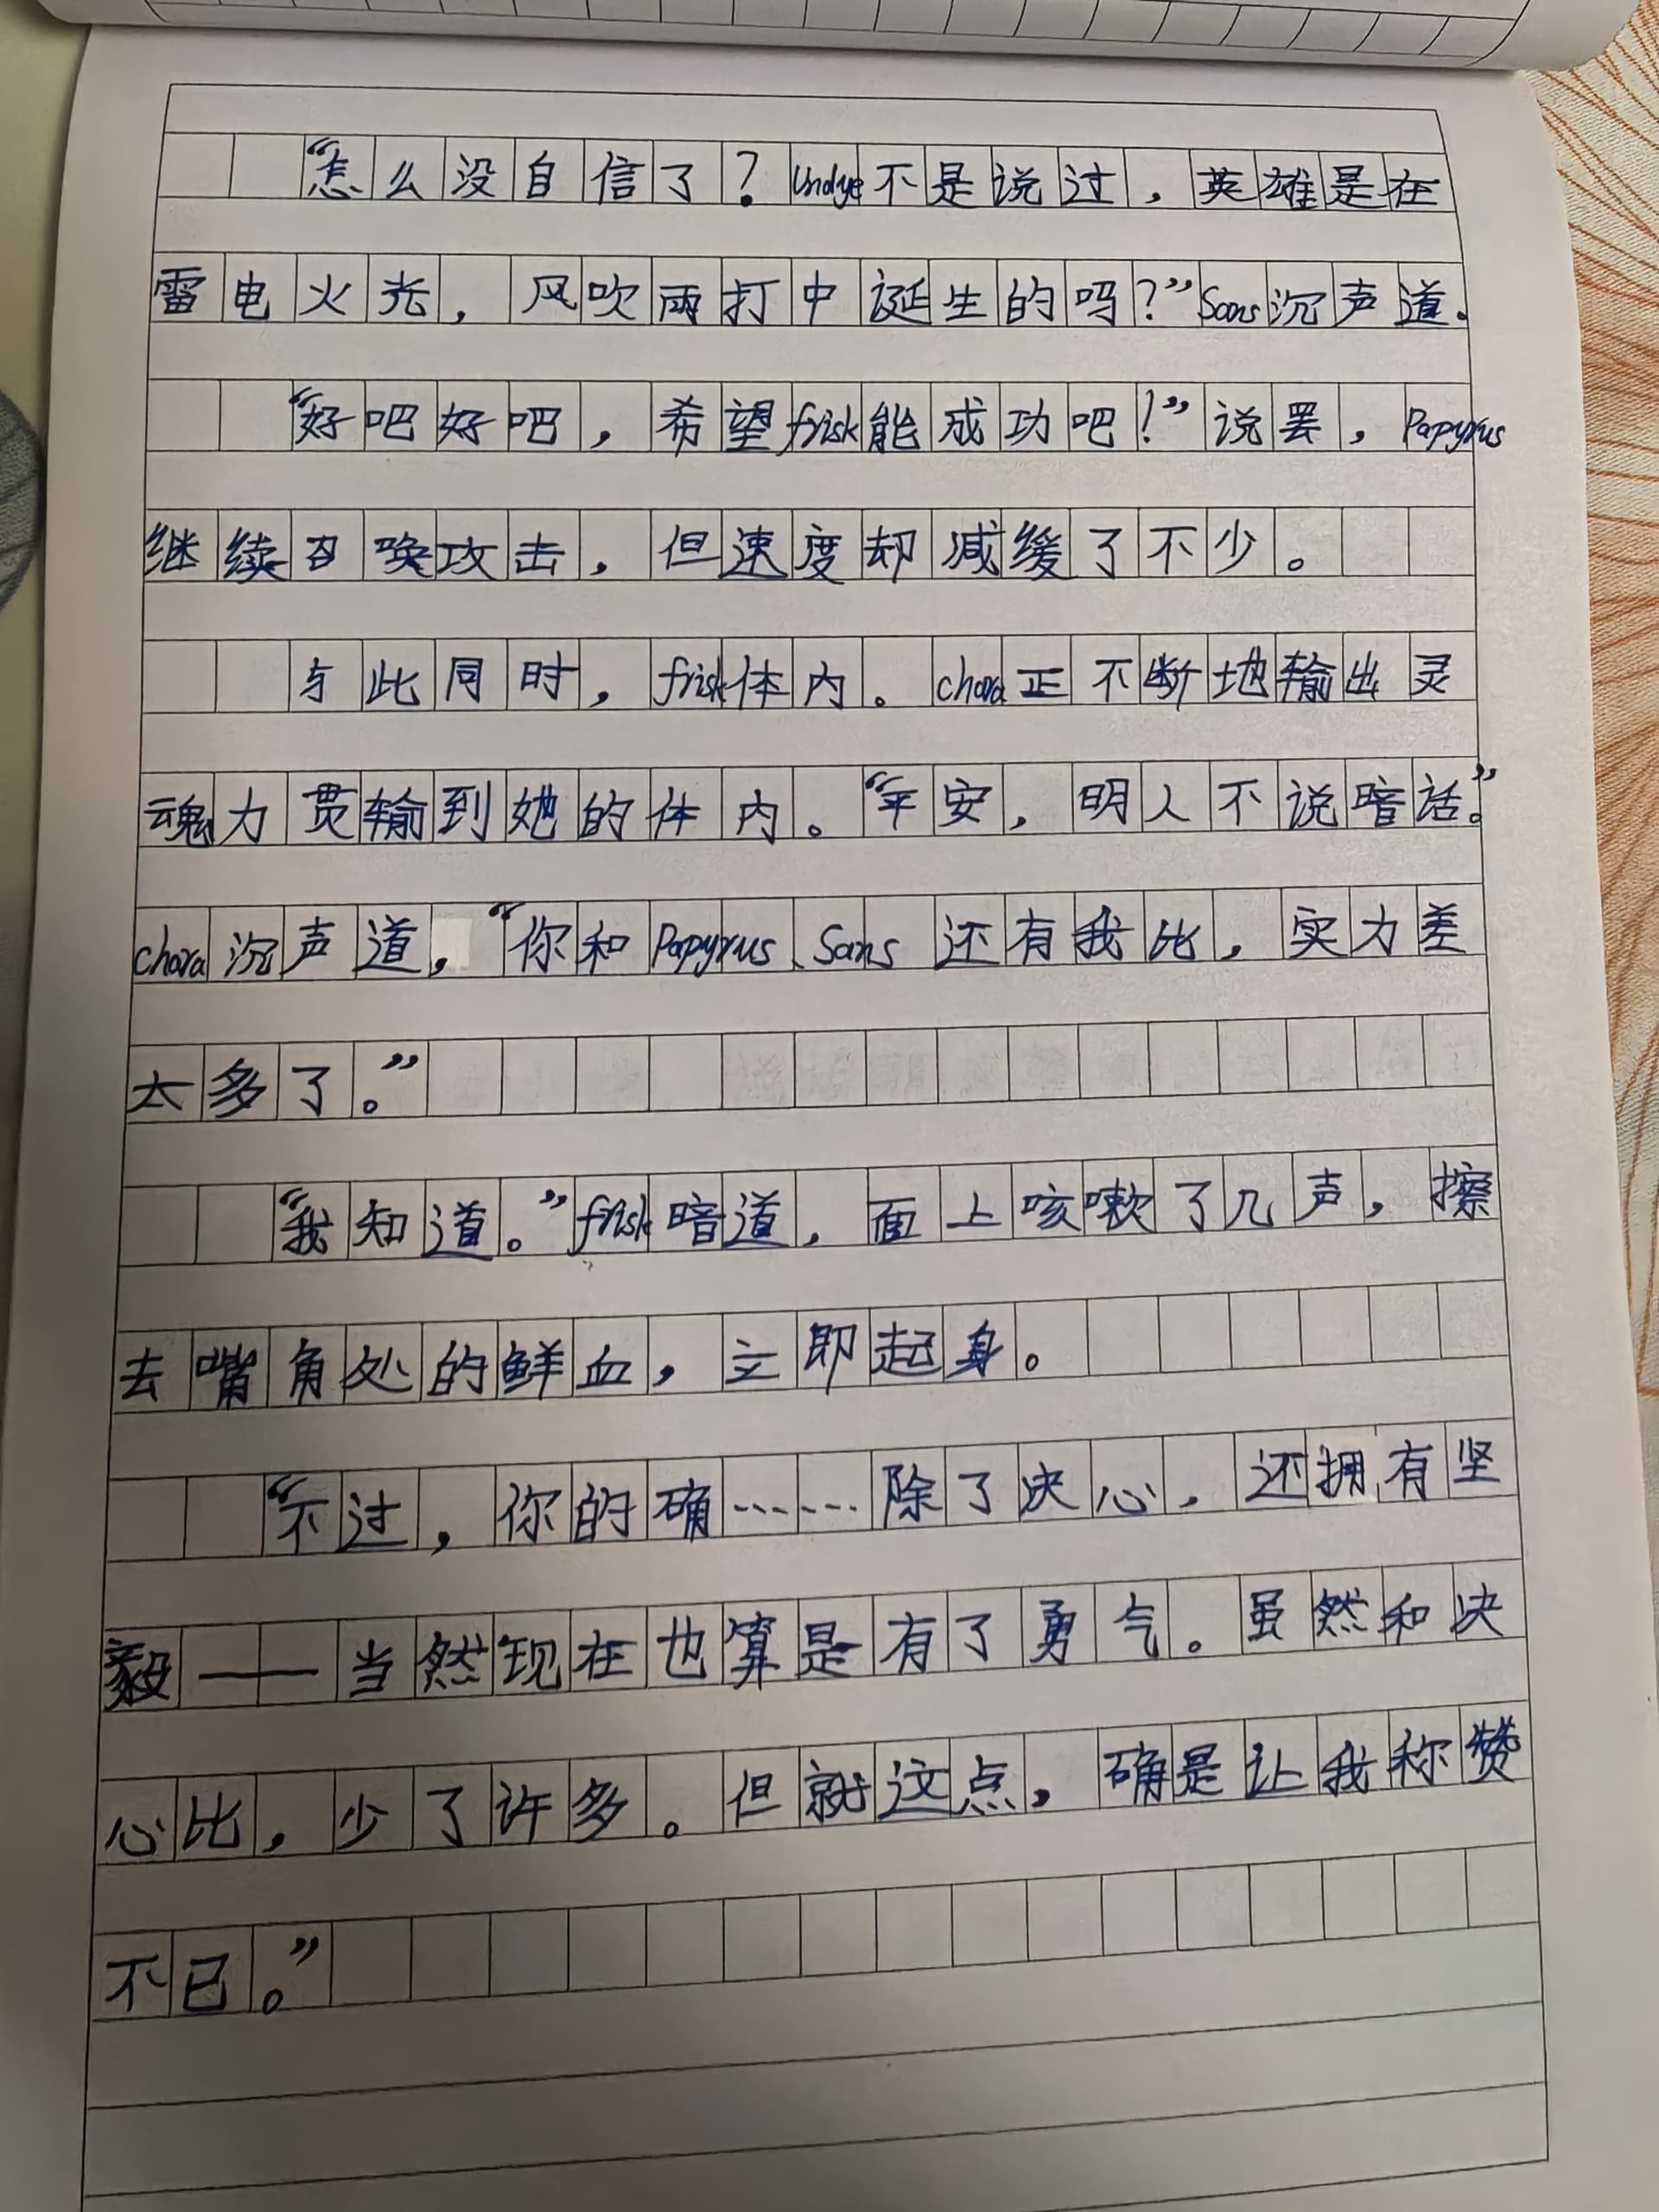 “怎么没自信了？Undye不是说过，英雄是在
雷电火光，风吹雨打中诞生的吗？”Sans沉声道.
“好吧好吧，希望frisk能成功吧！”说罢，Papyrus
继续召唤攻击，但速度却减缓了不少。
与此同时，frisk体内。chara正不断地输出灵
魂力贯输到她的体内。“平安，明人不说暗话。”
chara沉声道，“你和Papyrus、Sans还有我比，实力差
太多了。”
“我知道。”frisk暗道，面上咳嗽了几声，擦
去嘴角处的鲜血，立即起身。
“不过，你的确……除了决心，还拥有坚
毅——当然现在也算是有了勇气。虽然和决
心比，少了许多。但就这点，确是让我称赞
不已。”